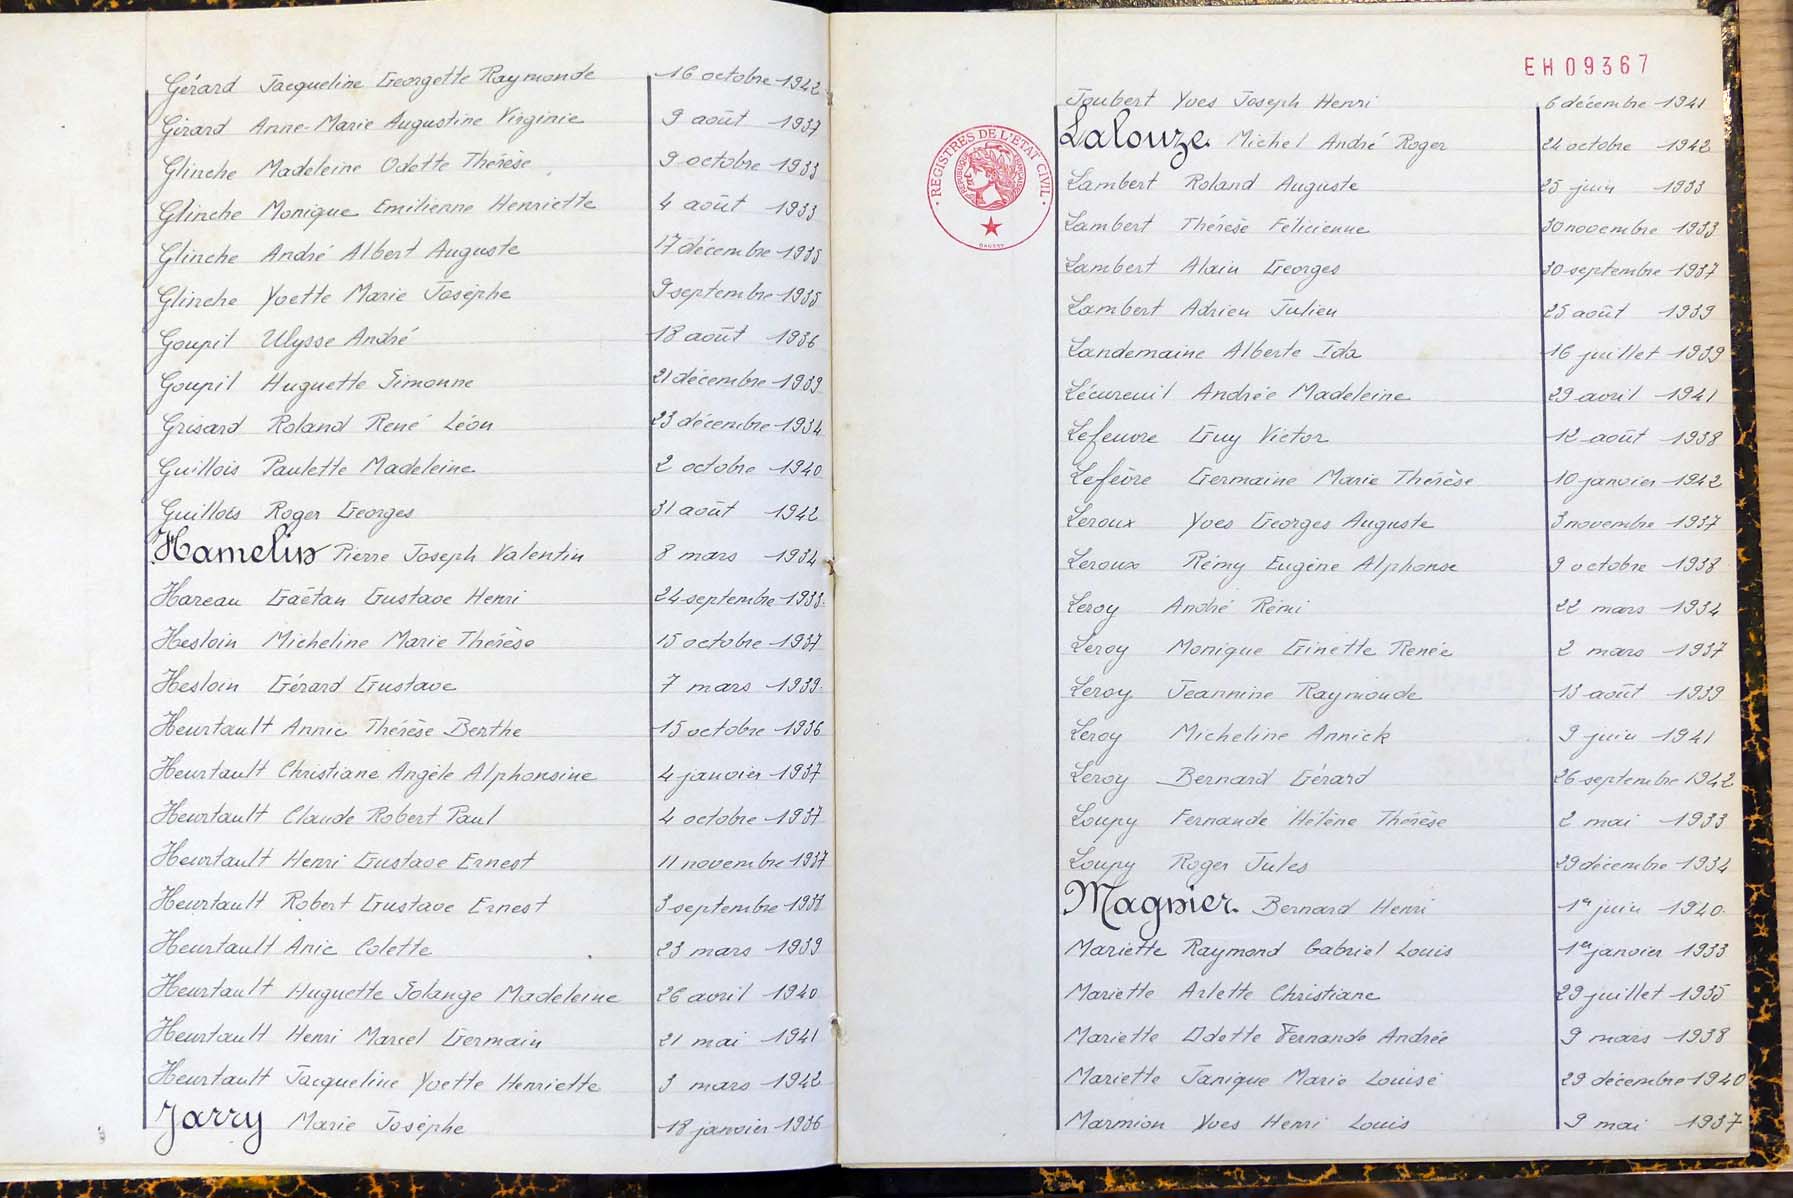 Gérard Jacqueline Georgette Raymonde 16 octobre 1942
Girard Anne-Marie Augustine Virginie 9 août 1937
Glinche Madeleine Odette Thérèse 9 octobre 1933
Glinche Monique Emilienne Henriette 4 août 1933
Glinche André Albert Auguste 17 décembre 1935
Glinche Yvette Marie Josèphe 9 septembre 1935
Goupil Ulysse André 18 août 1936
Goupil Huguette Simonne 21 décembre 1939
Grisard Roland René Léon 23 décembre 1934
Guillois Paulette Madeleine 2 octobre 1940
Guillois Roger Georges 31 août 1942
Hamelin Pierre Joseph Valentin 8 mars 1934
Hareau Gaëtan Gustave Henri 24 septembre 1933
Hesloin Micheline Marie Thérèse 15 octobre 1937
Hesloin Gérard Gustave 7 mars 1939
Heurtault Annie Thérèse Berthe 15 octobre 1936
Heurtault Christiane Angèle Alphonsine 4 janvier 1937
Heurtault Claude Robert Paul 4 octobre 1937
Heurtault Henri Gustave Ernest 11 novembre 1937
Heurtault Robert Gustave Ernest 3 septembre 1938
Heurtault Anie Colette 23 mars 1939
Heurtault Huguette Solange Madeleine 26 avril 1940
Heurtault Henri Marcel Germain 21 mai 1941
Heurtault Jacqueline Yvette Henriette 3 mars 1942
Jarry Marie Josèphe 18 janvier 1936
EH09367
REGISTRES DE L'ETAT CIVIL
Joubert Yves Joseph Henri 6 décembre 1941
Lalouze Michel André Roger 24 octobre 1942
Lambert Roland Auguste 25 juin 1933
Lambert Thérèse Félicienne 30 novembre 1933
Lambert Alain Georges 30 septembre 1937
Lambert Adrien Julien 25 août 1939
Landemaine Alberte Ida 16 juillet 1939
Lécureuil Andrée Madeleine 29 avril 1941
Lefeuvre Guy Victor 12 août 1938
Lefèvre Germaine Marie Thérèse 10 janvier 1942
Leroux Yves Georges Auguste 3 novembre 1937
Leroux Rémy Eugène Alphonse 9 octobre 1938
Leroy André Rémi 22 mars 1934
Leroy Monique Ginette Renée 2 mars 1937
Leroy Jeannine Raymonde 13 août 1939
Leroy Micheline Annick 9 juin 1941
Leroy Bernard Gérard 26 septembre 1942
Loupy Fernande Hélène Thérèse 2 mai 1933
Loupy Roger Jules 29 décembre 1934
Magnier Bernard Henri 1er juin 1940
Mariette Raymond Gabriel Louis 1er janvier 1933
Mariette Arlette Christiane 29 juillet 1935
Mariette Odette Fernande Andrée 9 mars 1938
Mariette Janique Marie Louise 29 décembre 1940
Marmion Yves Henri Louis 9 mai 1937